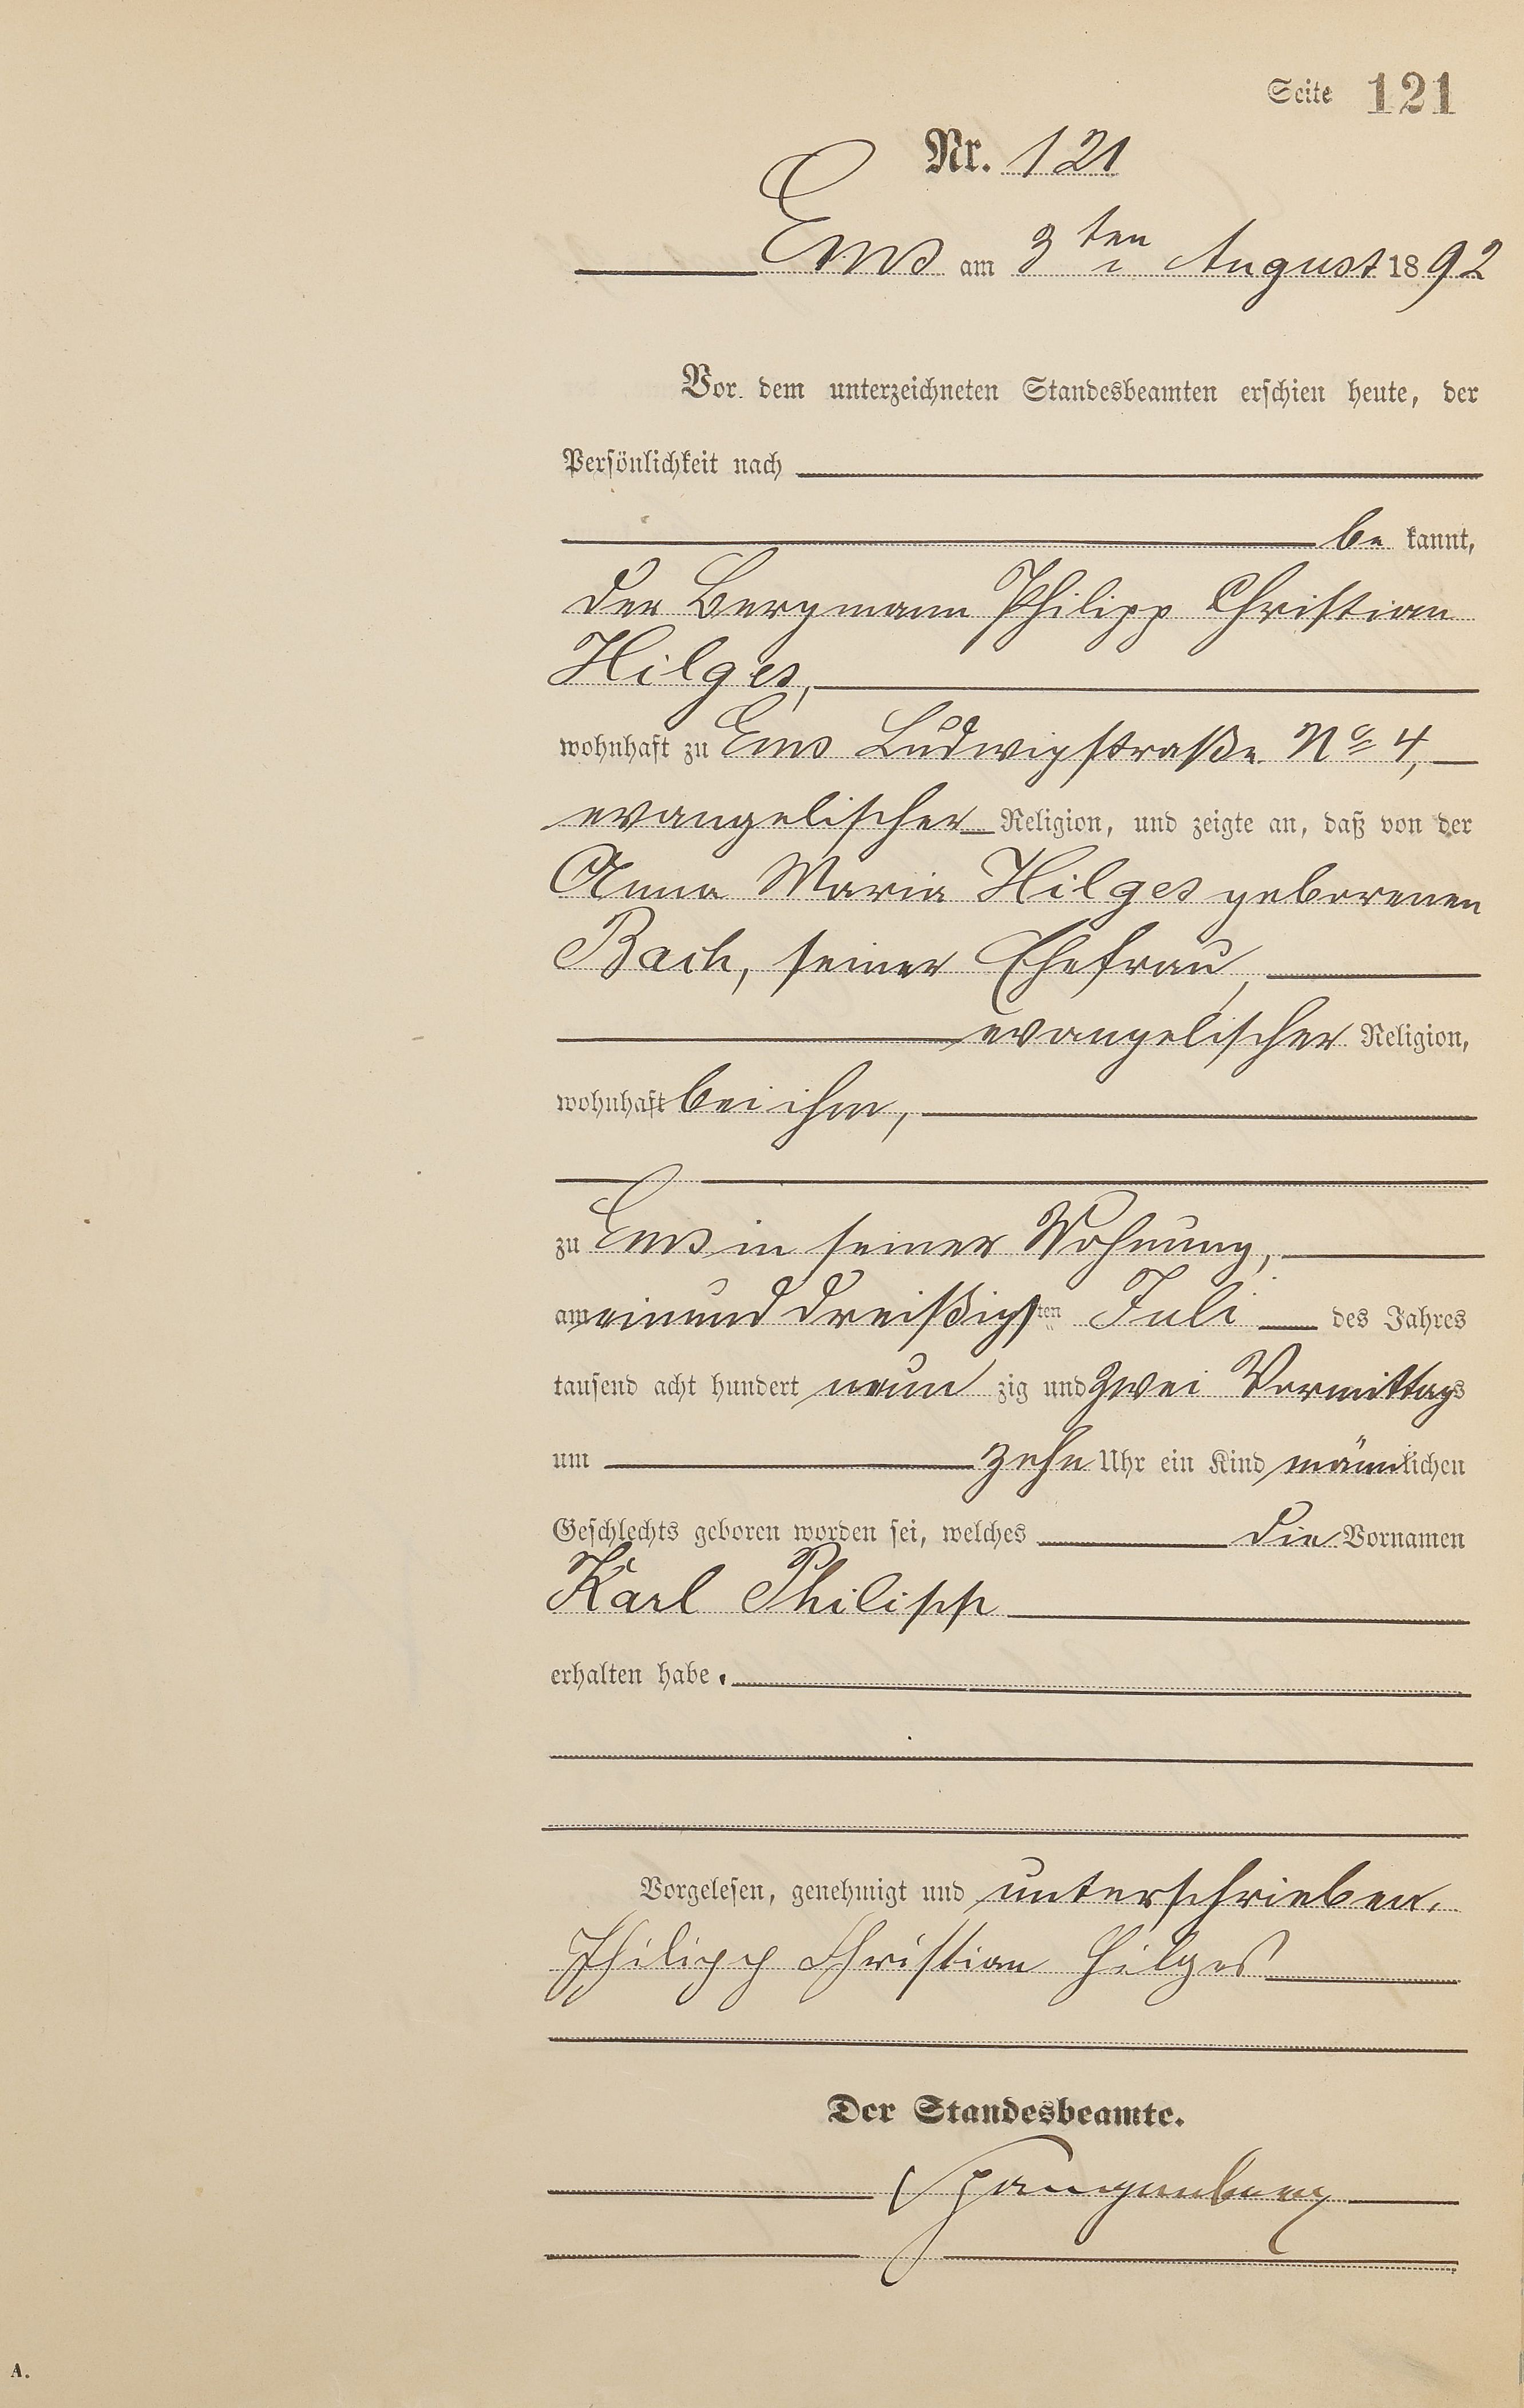 Seite 121
Nr. 121
Ems am 3ten August 1892
Vor dem unterzeichneten Standesbeamten erschien heute, der
Persönlichkeit nach
be kannt,
der Bergmann Philipp Christian
Hilges,
wohnhaft zu Ems Ludwigstraße No 4,
evangelischer Religion, und zeigte an, daß von der
Anna Maria Hilges geborenen
Bach, seiner Ehefrau,
evangelischer Religion,
wohnhaft bei ihm,
zu Ems in seiner Wohnung,
am einund dreißigsten Juli des Jahres
tausend acht hundert neun zig und zwei Vormittags
um zehn Uhr ein Kind männlichen
Geschlechts geboren worden sei, welches die Vornamen
Karl Philipp
erhalten habe.
Vorgelesen, genehmigt und unterschrieben.
Philipp Christian Hilges
Der Standesbeamte.
Spangenberg
A.